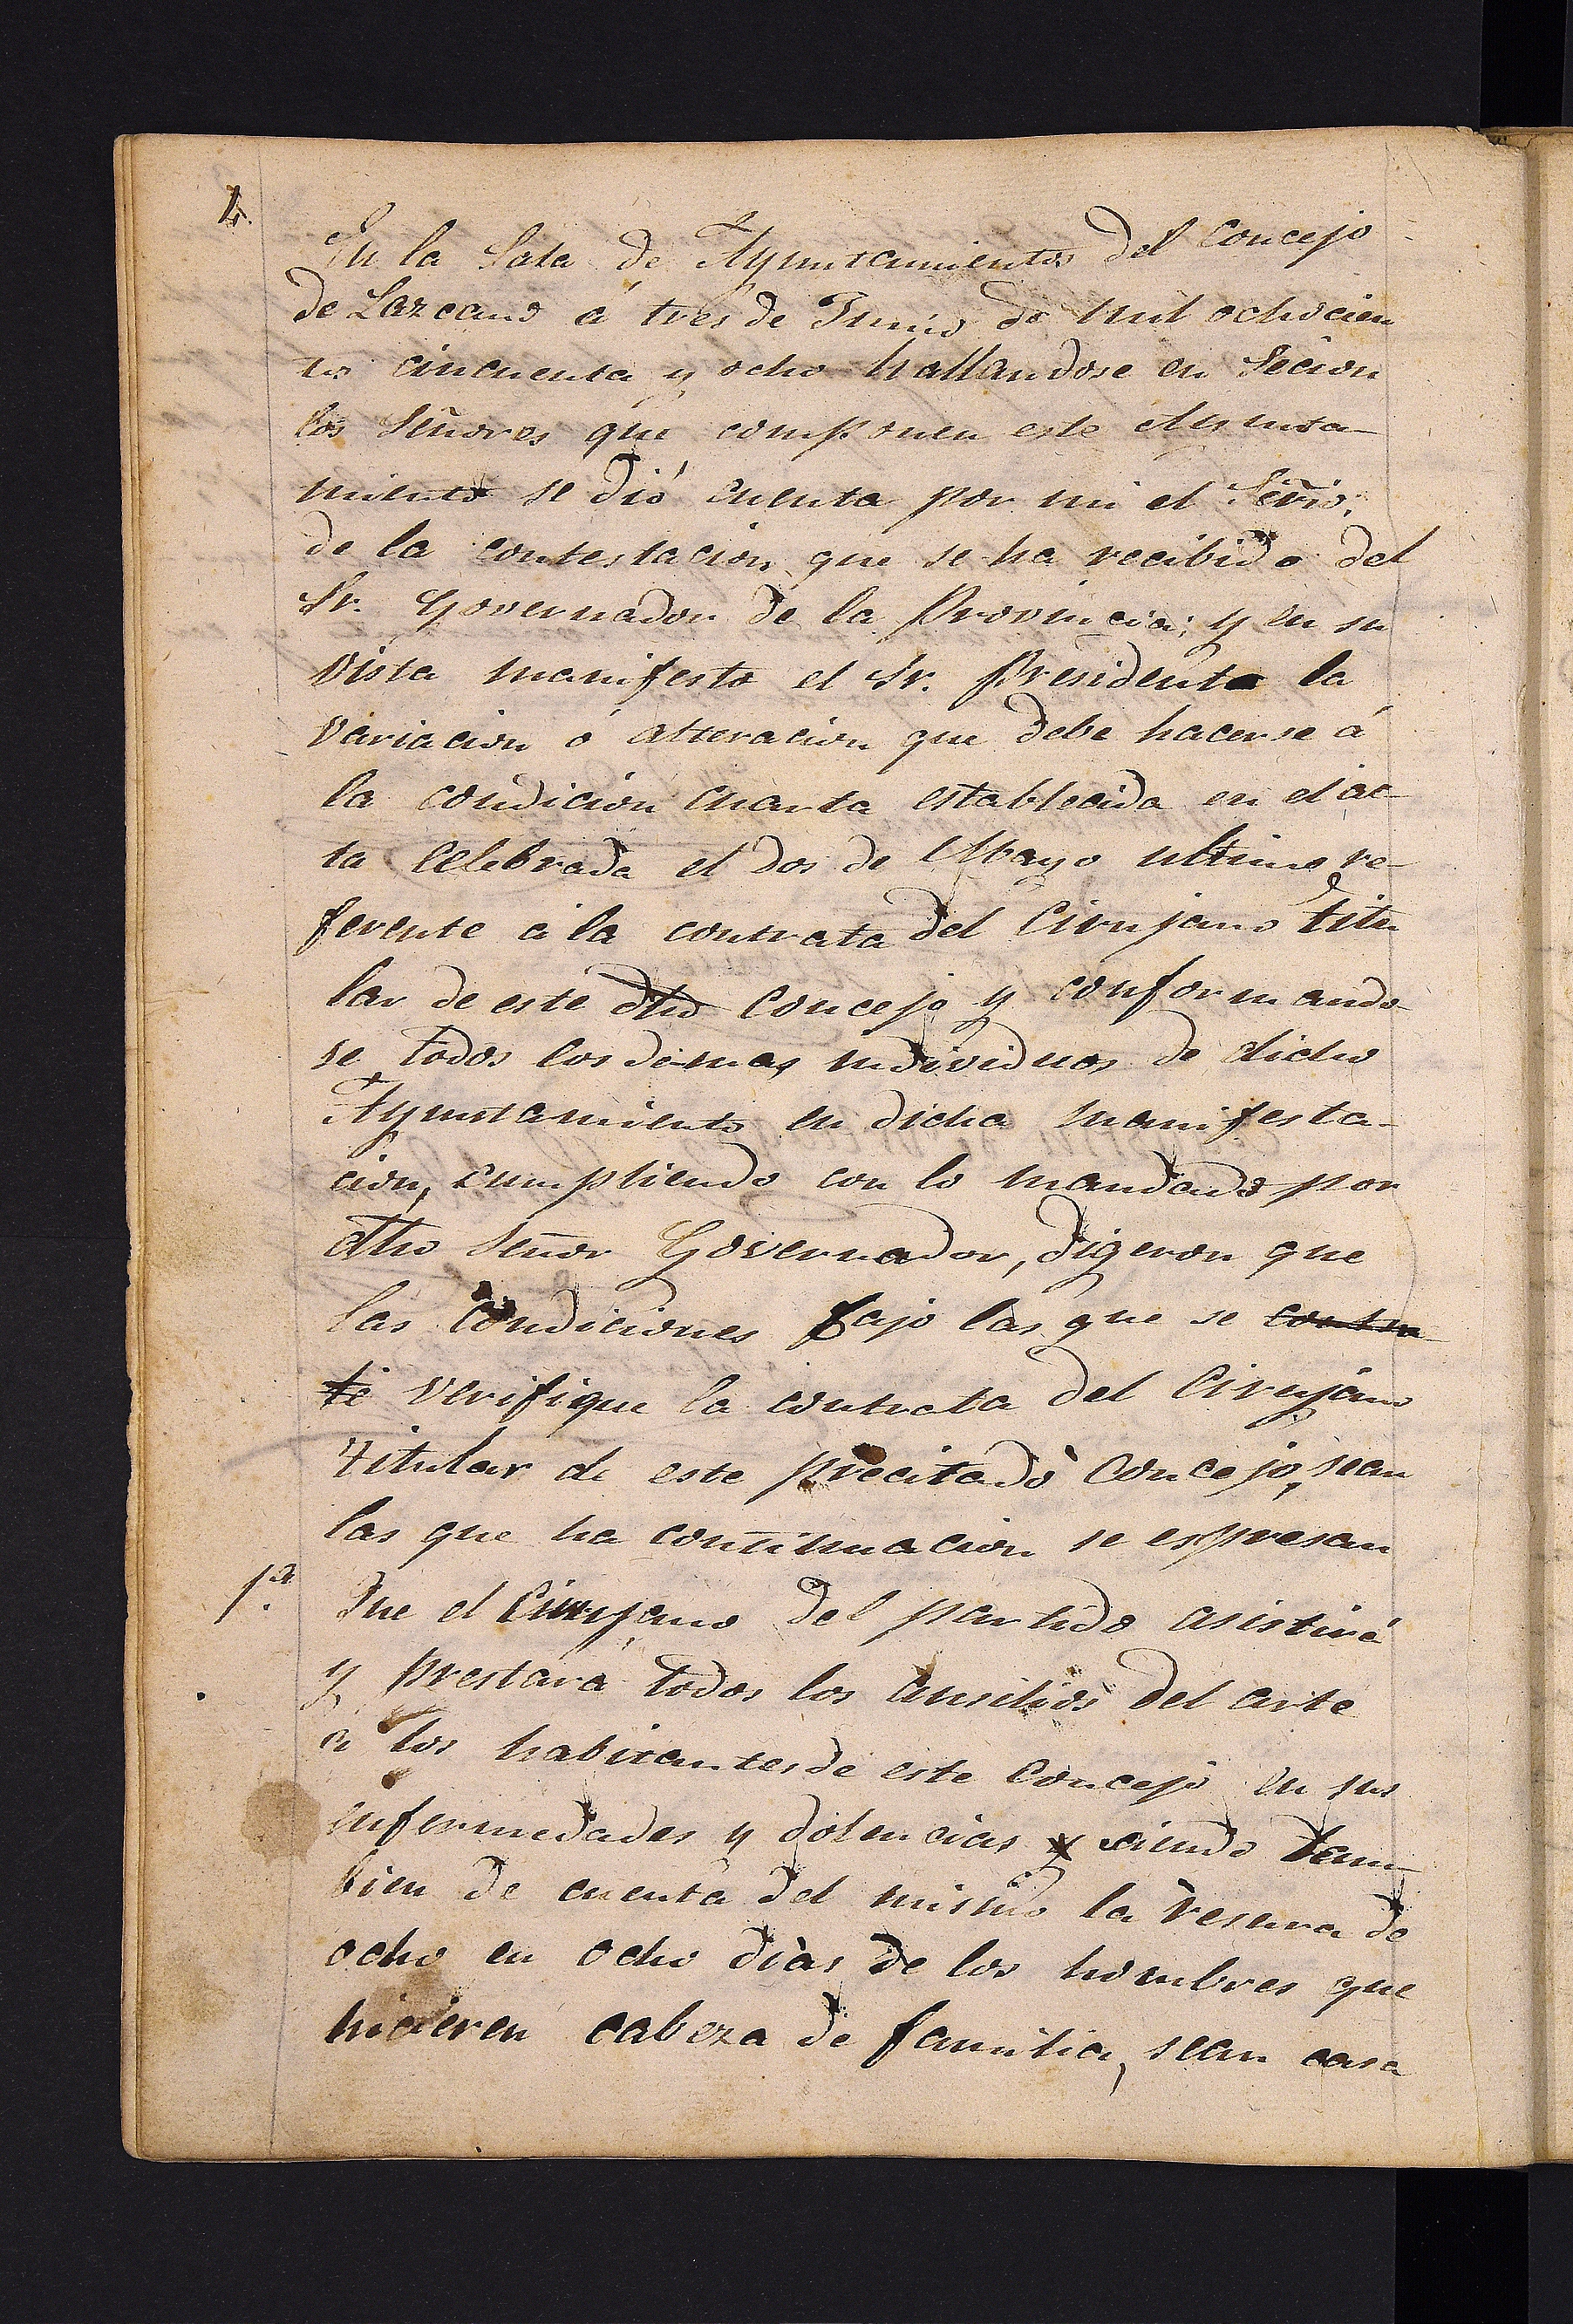 4.
En la Sala de Ayuntamientos del Concejo
de Lazcano á tres de Junio de mil ochocien
tos cincuenta y ocho hallandose en Secion
los Señores que componen este Ayunta-
miento se dió cuenta por mi el Serio.
de la contestacion que se ha recibido del
Sr. Governador de la Provincia; y en su
vista manifesto el Sr. Presidente la
variacion ó alteracion que debe hacerse á
la condicion cuarta establecida en el ac-
ta celebrada el dos de Mayo ultimo re-
ferente á la contrata del Cirujano titu
lar de este dho Concejo y conformando
se todos los demas individuos de dicho
Ayuntamiento en dicha manifesta-
cion, cumpliendo con lo mandado por
dho Señor Governador, digeron que
las condiciones bajo las que se contra
te verifique la contrata del Cirujano
titular de este precitado Concejo, sean
las que ha continuacion se espresan
1ª. Que el Cirujano del partido asistirá
y prestará todos los ausilios del arte
a los habitantes de este Concejo en sus
enfermedades y dolencias y siendo tam-
bien de cuenta del mismo la resura de
ocho en ocho dias de los hombres que
hicieren cabeza de familia, sean casa